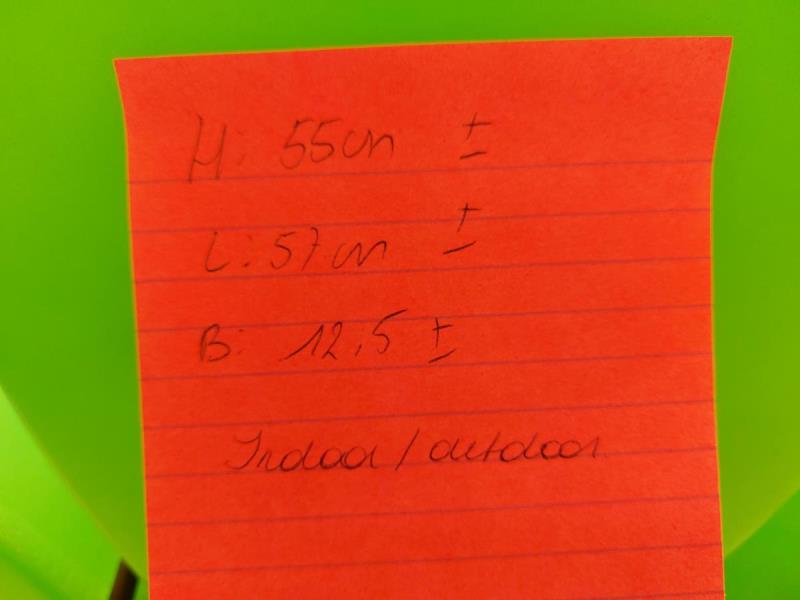 H: 55cm ±
L: 57cm ±
B: 12,5 ±
Indoor / outdoor